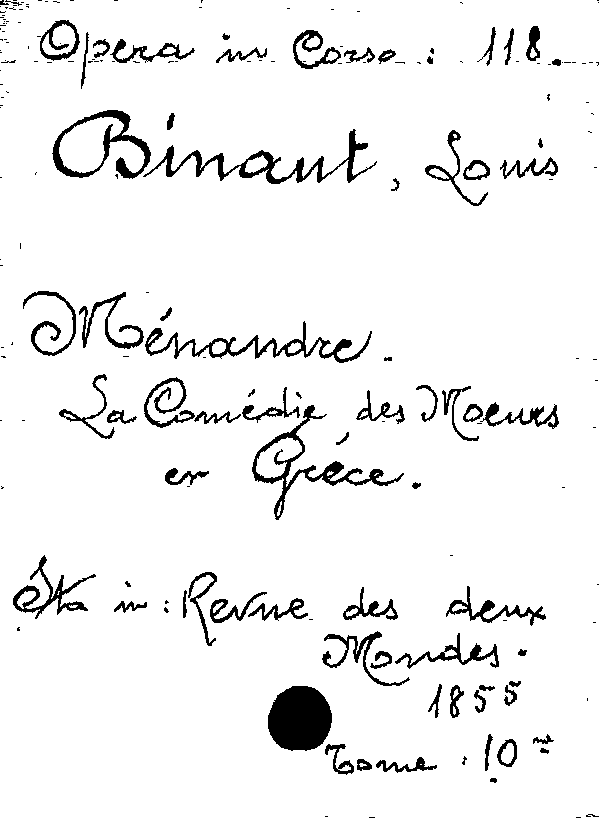 Opera in Corso : 118.
Binaut, Louis
Ménandre.
La Comédie des Moeurs
en Gréce.
Sta in : Revue des deux
Mondes.
1855
Tome : 10me